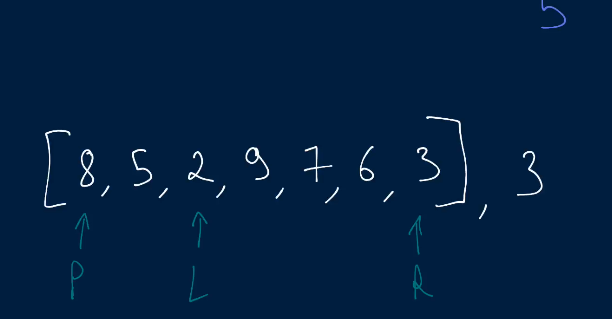 5
[8, 5, 2, 9, 7, 6, 3], 3
P L R